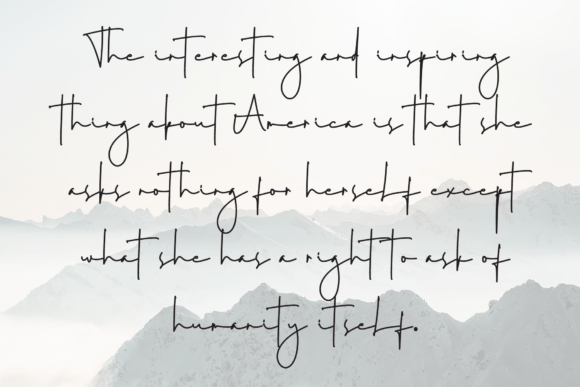 The interesting and inspiring
thing about America is that she
asks nothing for herself except
what she has a right to ask of
humanity itself.